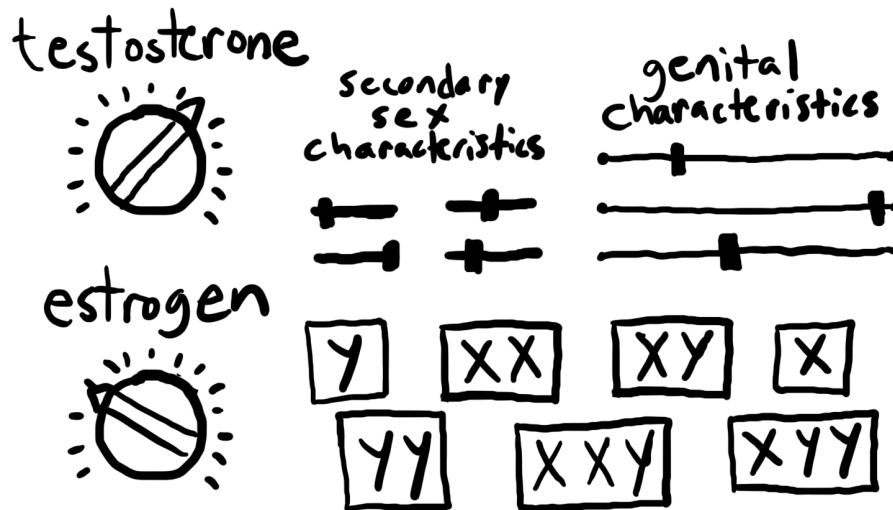 testosterone
secondary
sex
characteristics
genital
characteristics
estrogen
Y
XX
XY
X
YY
XXY
XYY